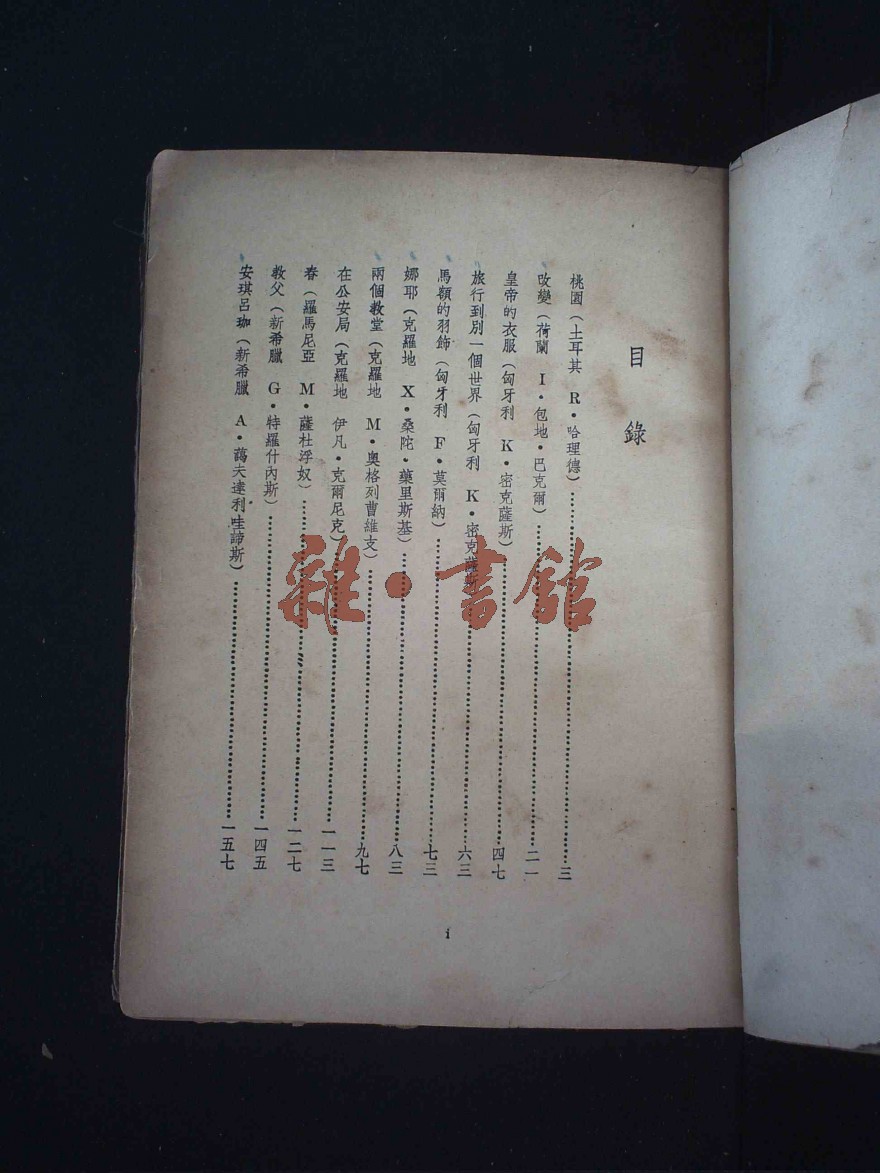 目錄
桃園（土耳其 R·哈理德）……三
改變（荷蘭 I·包地·巴克爾）……二一
皇帝的衣服（匈牙利 K·密克薩斯）……四七
旅行到別一個世界（匈牙利 K·密克薩斯……六三
馬額的羽飾（匈牙利 F·莫爾納）……七三
娜耶（克羅地 X·桑陀·藥里斯基）……八三
兩個教堂（克羅地 M·奧格列曹維支）……九七
在公安局（克羅地 伊凡·克爾尼克）……一一三
春（羅馬尼亞 M·薩杜浮奴）……一二七
教父（新希臘 G·特羅什內斯）……一四五
安琪呂珈（新希臘 A·藹夫達利哇諦斯）……一五七
i
雜·書館